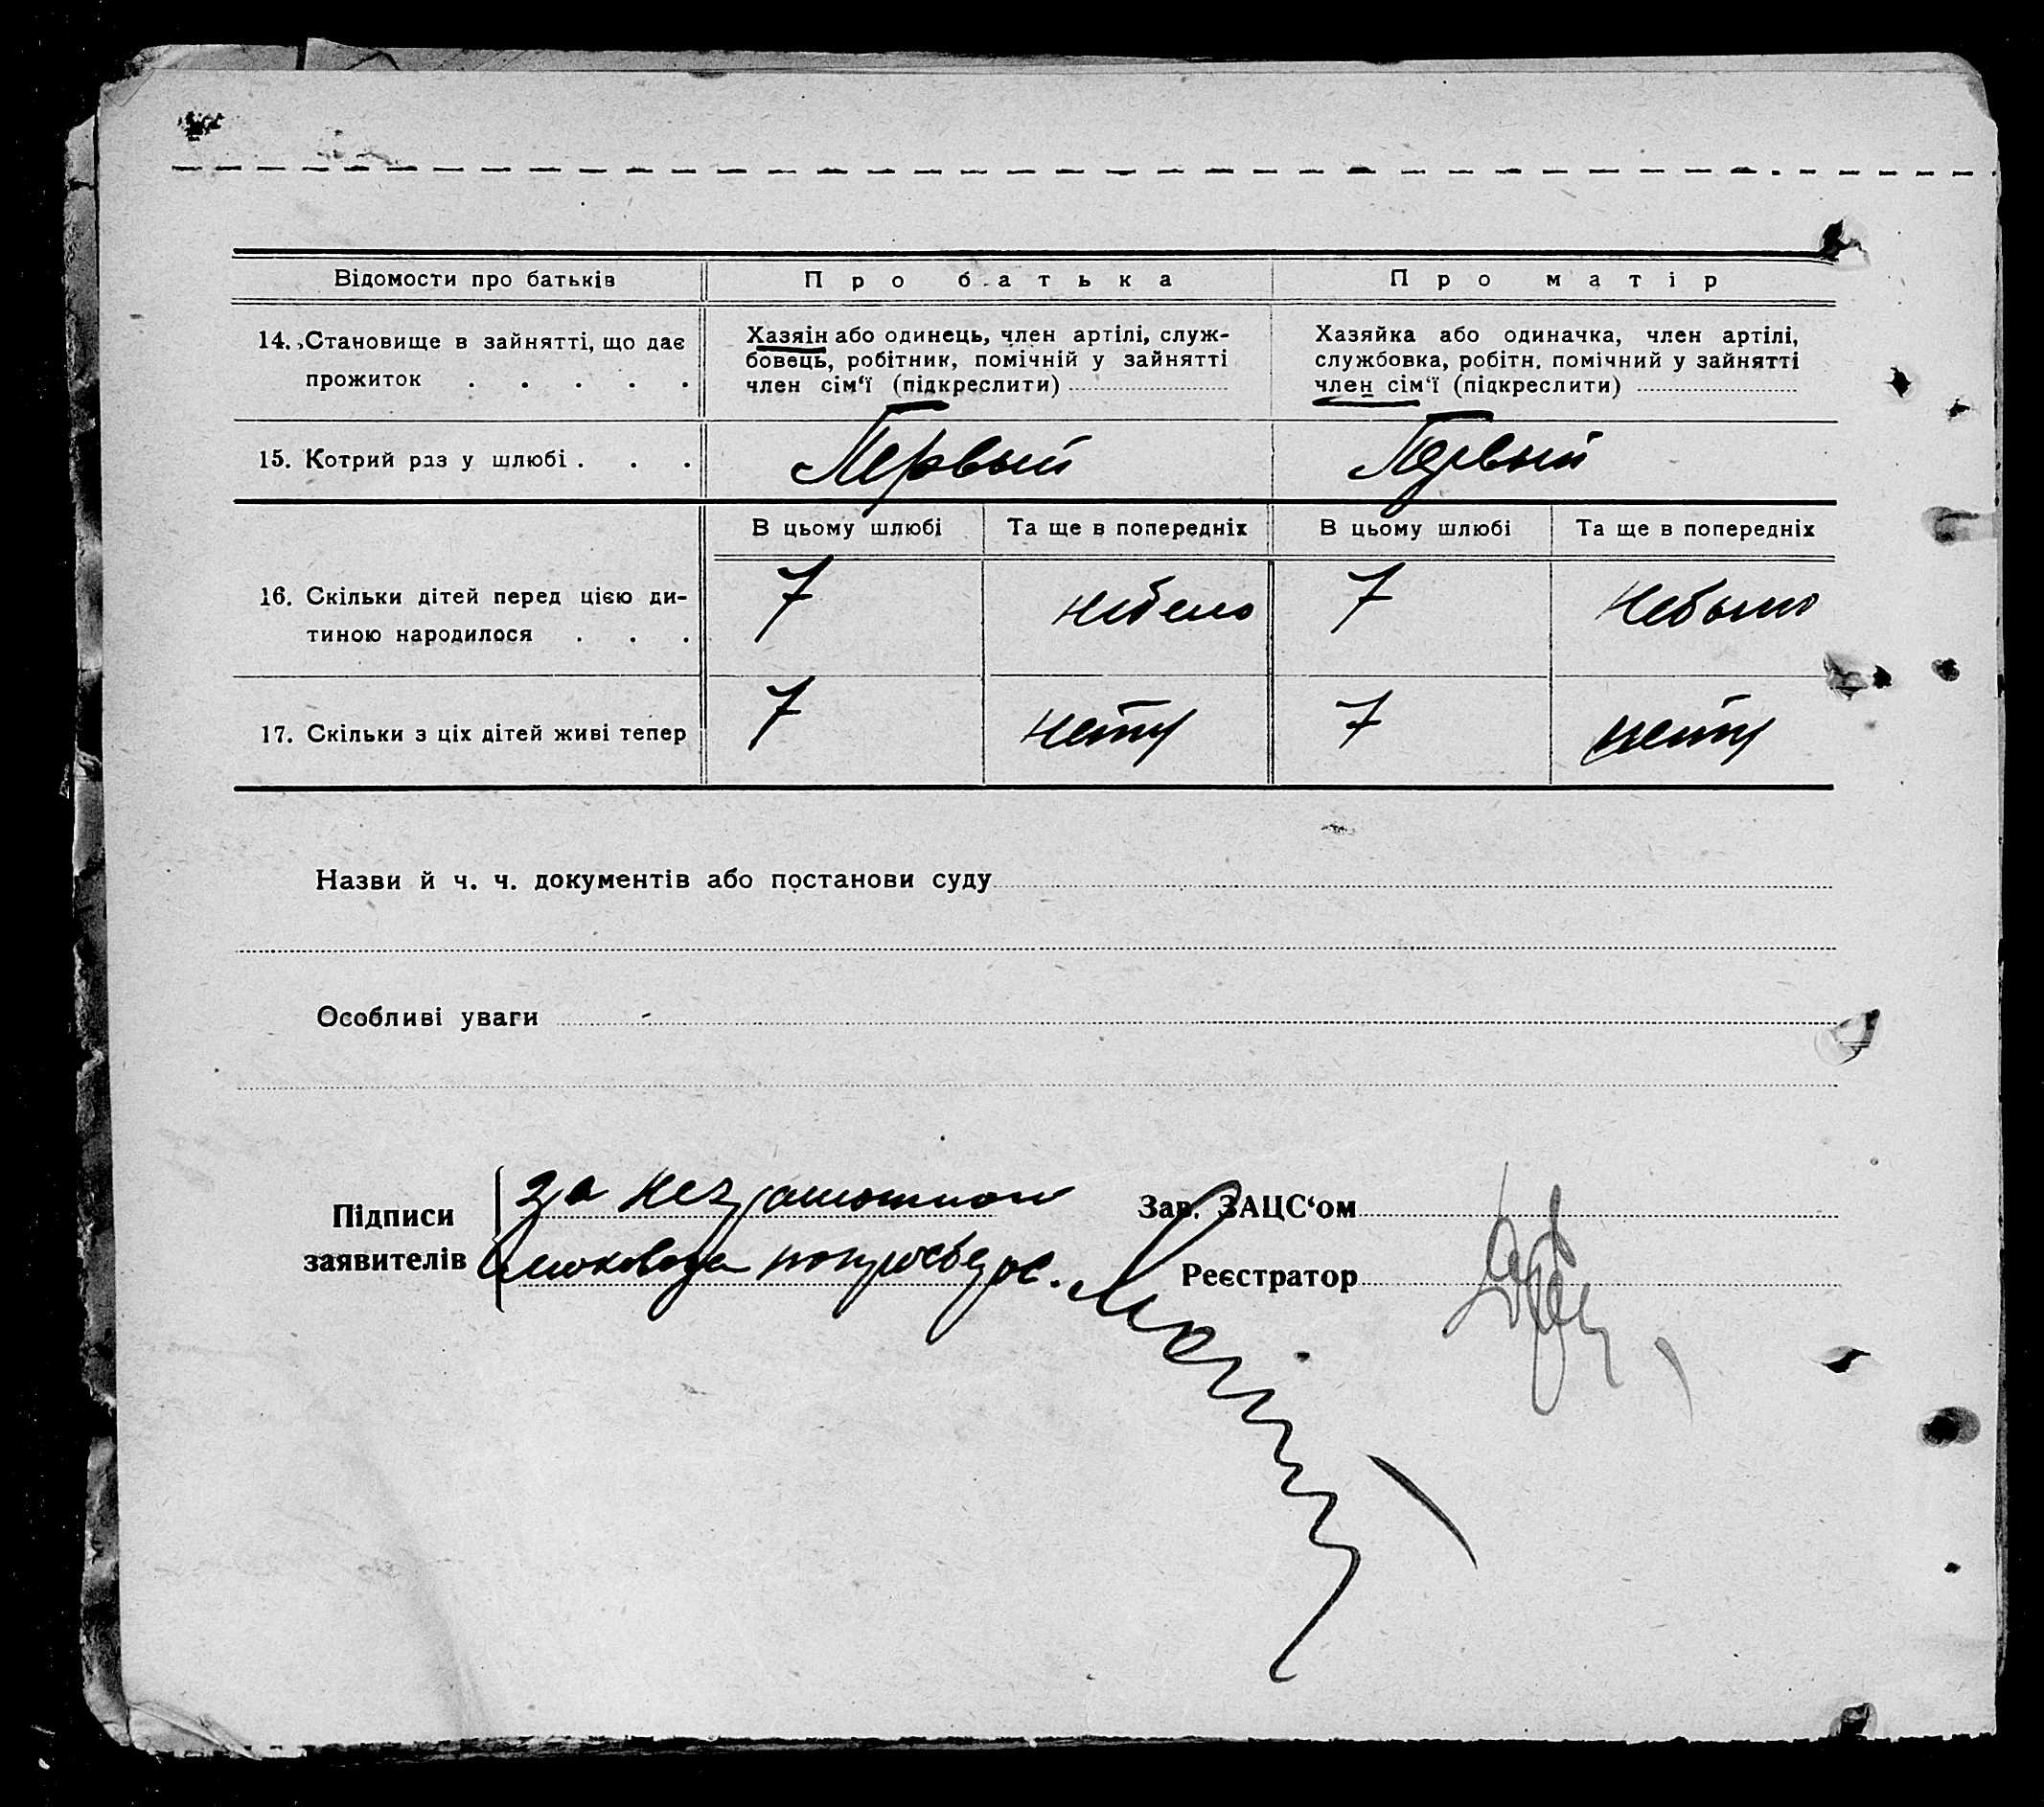 Відомости про батьків
Про батька
Про матір
14. Становище в зайнятті, що дає
прожиток . . . . .
Хазяїн або одинець, член артілі, служ-
бовець, робітник, помічній у зайнятті
член сім‘ї (підкреслити)
Хазяйка або одиначка, член артілі,
службовка, робітн. помічний у зайнятті
член сім‘ї (підкреслити)
15. Котрий раз у шлюбі . . .
Первый
Первый
В цьому шлюбі
Та ще в попередніх
В цьому шлюбі
Та ще в попередніх
16. Скільки дітей перед цією ди-
тиною народилося . . .
7
небыло
7
небыло
17. Скільки з ціх дітей живі тепер
7
нету
7
нету
Назви й ч. ч. документів або постанови суду
Особливі уваги
Підписи
заявителів
за
Зав. ЗАЦС‘ом
Реєстратор